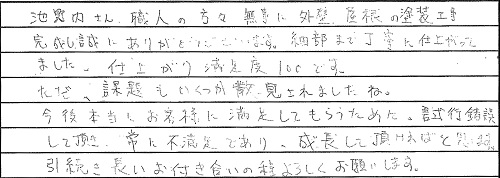 池野内さん、職人の方々 無事に 外壁、屋根の塗装工事
完成し誠にありがとうございます。細部まで丁寧に仕上がって
ました、仕上がり満足度100です。
ただ、課題もいくつか散見されましたね。
今後本当にお客様に満足してもらうために、試行錯誤
して頂き、常に不満足であり、成長して頂ければと思います。
引続き長いお付き合いの程よろしくお願いします。